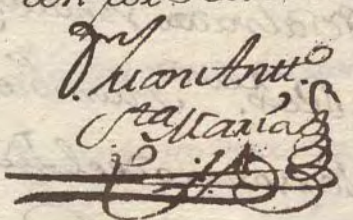 Juan Antt.º
Sta Maria